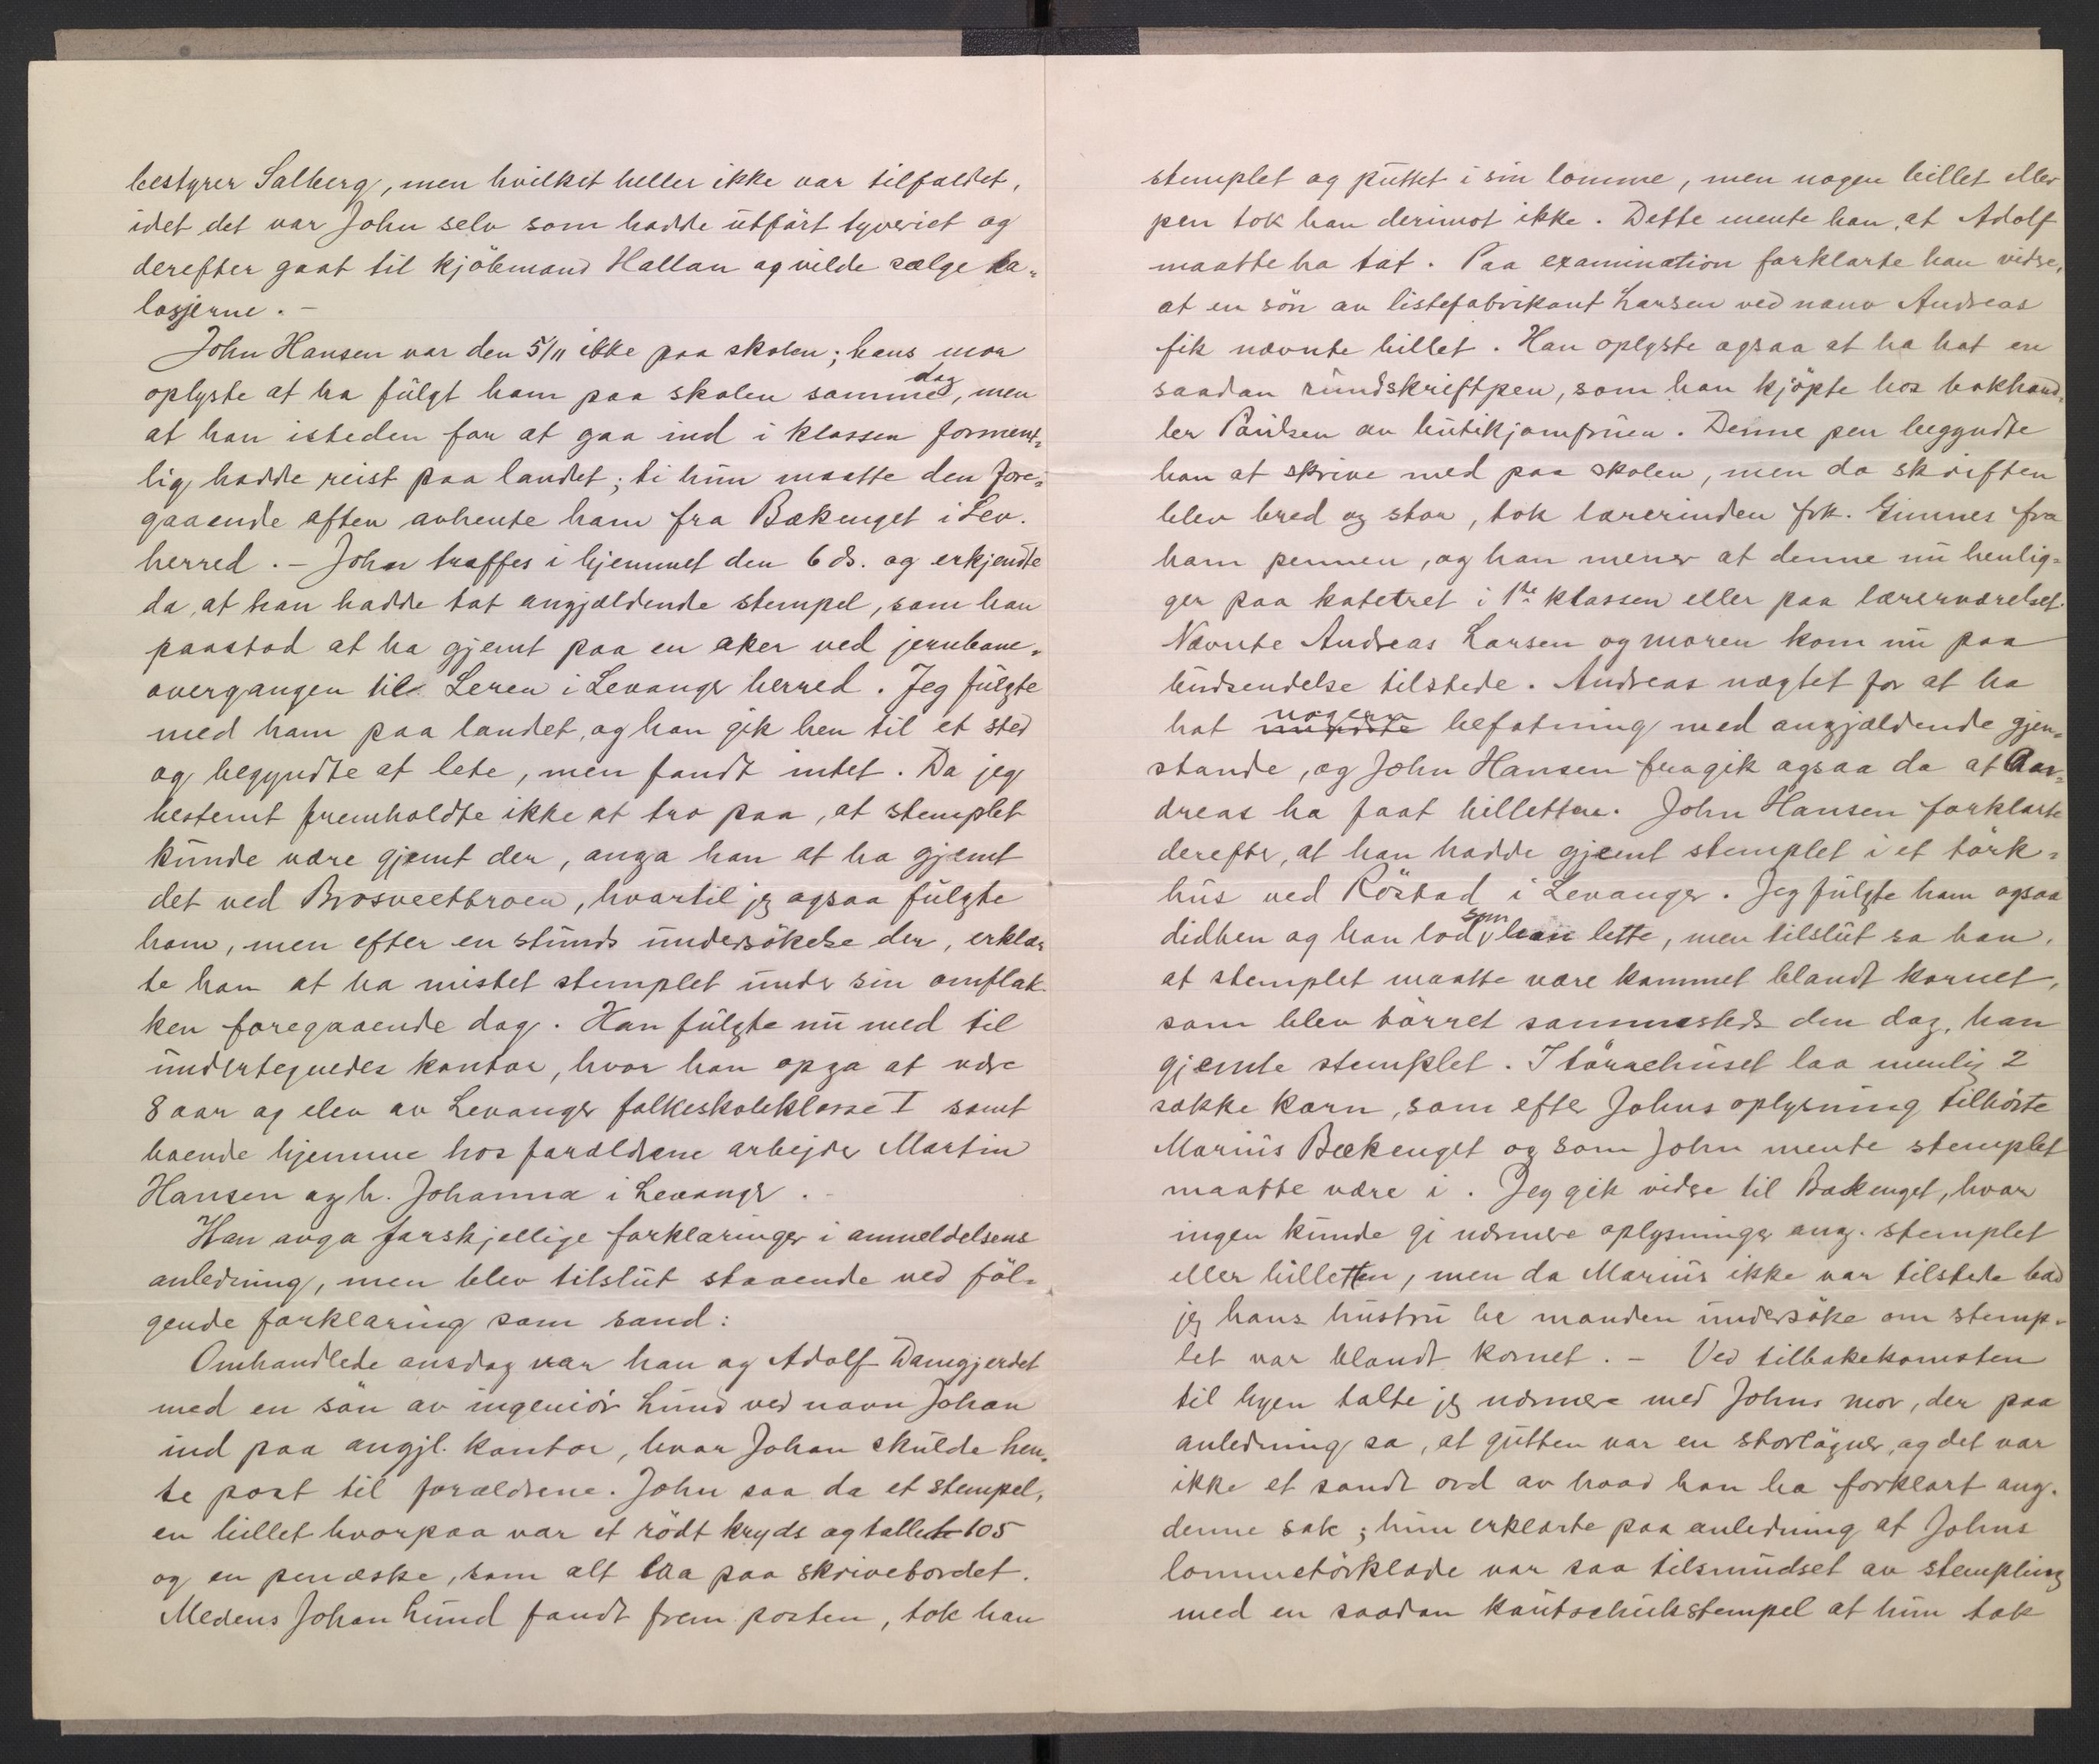 bestyrer Salberg, men hvilket heller ikke var tilfældet,
idet det var John selv som hadde utført tyveriet og
derefter gaat til kjöbmand Hallan og vilde sælge ka-
losjerne. –
John Hansen var den 5/11 ikke paa skolen; hans mor
oplyste at ha fulgt ham paa skolen samme dag, men
at han isteden for at gaa ind i klassen forment-
lig hadde reist paa landet; ti hun maatte den fore-
gaaende aften avhente ham fra Bækenget i Lev.
herred. – John traffes i hjemmet den 6 ds. og erkjendte
da, at han hadde tat angjældende stempel, som han
paastod at ha gjemt paa en aker ved jernbane-
overgangen til Leren i Levanger herred. Jeg fulgte
med ham paa landet, og han gik hen til et sted
og begyndte at lete, men fandt intet. Da jeg
bestemt fremholdte ikke at tro paa, at stemplet
kunde være gjemt der, anga han at ha gjemt
det ved Brosveetbroen, hvortil jeg ogsaa fulgte
ham, men efter en stunds undersökelse der, erklær-
te han at ha mistet stemplet under sin omflak-
ken foregaaende dag. Han fulgte nu med til
undertegnedes kontor, hvor han opga at være
8 aar og elev av Levanger folkeskoleklasse I samt
boende hjemme hos forældrene arbejder Martin
Hansen og h. Johanna i Levanger. –
Han avga forskjellige forklaringer i anmeldelsens
anledning, men blev tilslut staaende ved föl-
gende forklaring som sand:
Omhandlede onsdag var han og Adolf Damgjerdet
med en sön av ingeniör Lund ved navn Johan
ind paa angjl. kontor, hvor Johan skulde hen-
te post til forældrene. John saa da et stempel,
en billet hvorpaa var et rödt kryds og tallet 105
og en penæske, som alt laa paa skrivebordet.
Medens Johan Lund fandt frem posten, tok han
stemplet og puttet i sin lomme, men nogen billet eller
pen tok han derimot ikke. Dette mente han, at Adolf
maatte ha tat. Paa examination forklarte han videre,
at en sön av listefabrikant Larsen ved navn Andreas
fik nævnte billet. Han oplyste ogsaa at ha hat en
saadan rundskriftpen, som han kjöpte hos bokhand-
ler Paulsen av butikjomfruen. Denne pen begyndte
han at skrive med paa skolen, men da skriften
blev bred og stor, tok lærerinden frk. Gimnes fra
ham pennen, og han mener at denne nu henlig-
ger paa katetret i 1ste klassen eller paa lærerværelset.
Nævnte Andreas Larsen og moren kom nu paa
budsendelse tilstede. Andreas nægtet for at ha
hat nogen befatning med angjældende gjen-
stande, og John Hansen fragik ogsaa da at An-
dreas ha faat billetten. John Hansen forklarte
derefter, at han hadde gjemt stemplet i et törk-
hus ved Röstad i Levanger. Jeg fulgte ham ogsaa
didhen og han lod som han lette, men tilslut sa han,
at stemplet maatte være kommet blandt kornet,
som blev törret sammesteds den dag, han
gjemte stemplet. I törrehuset laa nemlig 2
sække korn, som efter Johns oplysning tilhörte
Marius Bækenget og som John mente stemplet
maatte være i. Jeg gik videre til Bækenget, hvor
ingen kunde gi nærmere oplysninger ang. stemplet
eller billetten, men da Marius ikke var tilstede bad
jeg hans hustru be manden undersöke om stemp-
let var blandt kornet. – Ved tilbakekomsten
til byen talte jeg nærmere med Johns mor, der paa
anledning sa, at gutten var en storlögner, og det var
ikke et sandt ord av hvad han ha forklart ang.
denne sak; hun erklærte paa anledning at Johns
lommetörklæde var saa tilsmudset av stempling
med en saadan kautschukstempel at hun tok